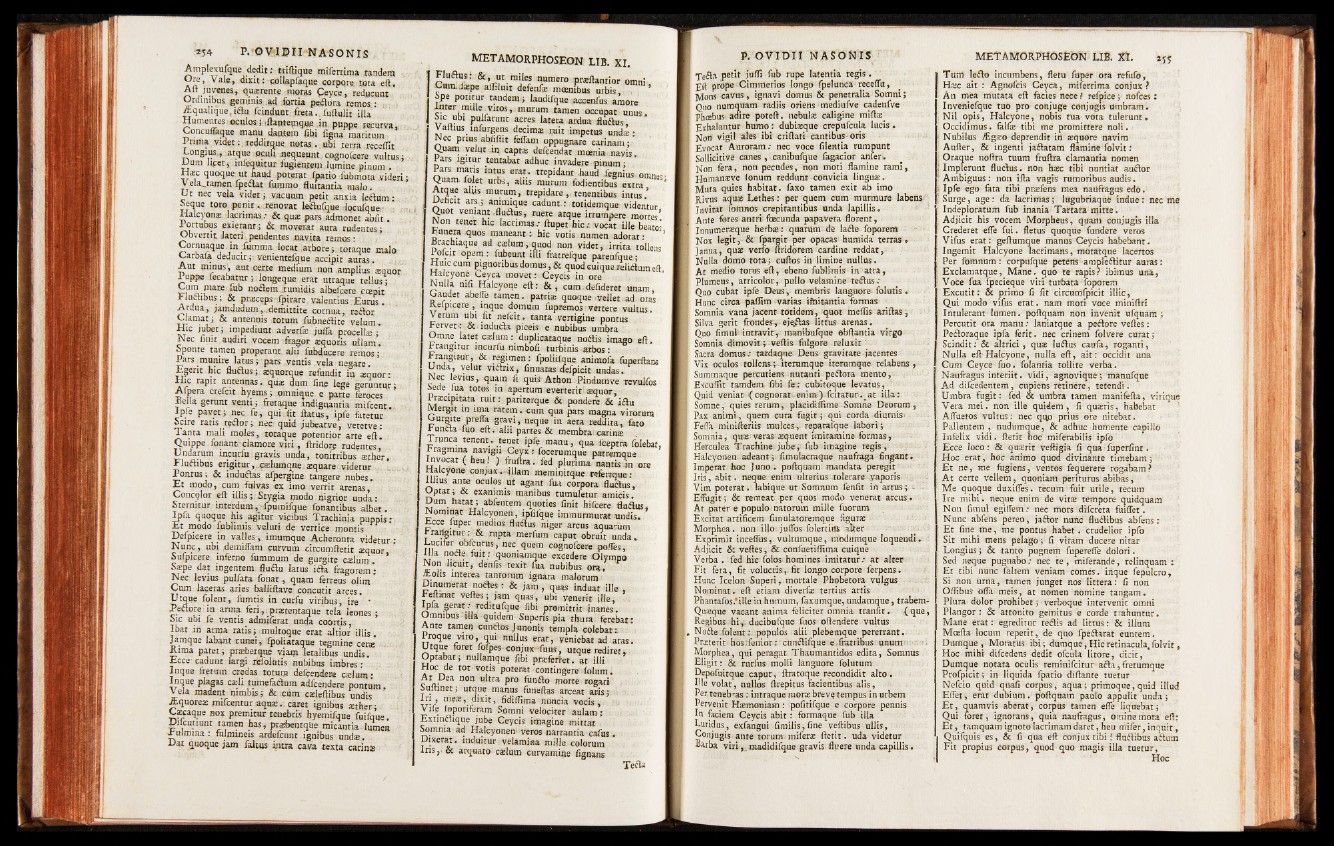 254 P. OVIDII NASONIS
Amplexuſque dedit: triſtique miſerrima tandem
Ore, Vale, dixit: collapſaque corpore tota eſt.
Aſt juvenes, quærente moras Ceyce, reducunt
Ordinibus geminis ad fortia pectora remos:
Æqualique ictu ſcindunt freta. ſuſtulit illa
Humentes oculos; ſtantemque in puppe recurva,
Concuſſaque manu dantem ſibi ſigna maritum
Prima videt: redditque notas. ubi terra receſſit
Longius, atque oculi nequeunt cognoſcere vultus;
Dum licet, inſequitur fugientem lumine pinum.
Hæc quoque ut haud poterat ſpatio ſubmota videri;
Vela tamen ſpectat ſummo fluitantia malo.
Ut nec vela videt; vacuum petit anxia lectum:
Seque toro ponit. renovat lectuſque locuſque
Halcyonæ lacrimas: & quæ pars admonet abſit.
Portubus exierant; & moverat aura rudentes;
Obvertit lateri pendentes navita remos:
Cornuaque in ſumma locat arbore; totaque malo
Carbaſa deducit; venienteſque accipit auras.
Aut minus, aut certe medium non amplius æquor
Puppe ſecabatur; longeque erat utraque tellus;
Cum mare ſub noctem tumidis albeſcere cœpit
Fluctibus; & præceps ſpirare valentius Eurus.
Ardua, jamdudum, demittite cornua, rector
Clamat; & antennis totum ſubnectite velum.
Hic jubet; impediunt adverſæ juſſa procellæ;
Nec ſinit audiri vocem fragor æquoris ullam.
Sponte tamen properant alii ſubducere remos;
Pars munire latus; pars ventis vela negare.
Egerit hic fluctus; æquorque refundit in æquor:
Hic rapit antennas. quæ dum ſine lege geruntur;
Aſpera creſcit hyems; omnique e parte feroces
Bella gerunt venti; fretaque indignantia miſcent.
Ipſe pavet; nec ſe, qui ſit ſtatus, ipſe fatetur
Scire ratis rector; nec quid jubeatve, vetetve:
Tanta mali moles, totaque potentior arte eſt.
Quippe ſonant clamore viri, ſtridore rudentes,
Undarum incurſu gravis unda, tonitribus æther,
Fluctibus erigitur, cælumque æquare videtur
Pontus: & inductas aſpergine tangere nubes.
Et modo, cum fulvas ex imo verrit arenas,
Concolor eſt illis; Stygia modo nigrior unda:
Sternitur interdum, ſpumiſque ſonantibus albet.
Ipſa quoque his agitur vicibus Trachinia puppis:
Et modo ſublimis veluti de vertice montis
Deſpicere in valles, imumque Acheronta videtur:
Nunc, ubi demiſſam curvum circumſtetit æquor,
Suſpicere inferno ſummum de gurgite cælum.
Sæpe dat ingentem fluctu latus icta fragorem:
Nec levius pulſata ſonat, quam ferreus olim
Cum laceras aries balliſtave concutit arces.
Utque ſolent, ſumtis in curſu viribus, ire
Pectore in arma feri, prætentaque tela leones;
Sic ubi ſe ventis admiſerat unda coortis,
Ibat in arma ratis; multoque erat altior illis.
Jamque labant cunei, ſpoliataque tegmine ceræ
Rima patet; præbetque viam letalibus undis.
Ecce cadunt largi reſolutis nubibus imbres:
Inque fretum credas totum deſcendere cælum:
Inque plagas cæli tumefactum adſcendere pontum,
Vela madent nimbis; & cum cæleſtibus undis
Æquoreæ miſcentur aquæ. caret ignibus æther;
Cæcaque nox premitur tenebris hyemiſque ſuiſque.
Diſcutiunt tamen has, præbentque micantia lumen
Fulmina: fulmineis ardeſcunt ignibus undæ.
Dat quoque jam ſaltus intra cava texta carinæ
METAMORPHOSEON LIB. XI.
Fluctus: &, ut miles numero præſtantior omni,
Cum ſæpe aſſiluit defenſæ mœnibus urbis,
Spe potitur tandem; laudiſque accenſus amore
Inter mille viros, murum tamen occupat unus.
Sic ubi pulſarunt acres latera ardua fluctus,
Vaſtius inſurgens decimæ ruit impetus undæ:
Nec prius abſiſtit feſſam oppugnare carinam;
Quam velut in captæ deſcendat mœnia navis.
Pars igitur tentabat adhuc invadere pinum;
Pars maris intus erat. trepidant haud ſegnius omnes;
Quam ſolet urbs, aliis murum fodientibus extra,
Atque aliis murum, trepidare, tenentibus intus.
Deficit ars; animique cadunt: totidemque videntur,
Quot veniant fluctus, ruere atque irrumpere mortes.
Non tenet hic lacrimas: ſtupet hic: vocat ille beatos,
Funera quos maneant: hic votis numen adorat:
Brachiaque ad cælum, quod non videt, irrita tollens
Poſcit opem: ſubeunt illi fratreſque parenſque;
Huic cum pignoribus domus, & quod cuique relictum eſt.
Halcyone Ceyca movet: Ceycis in ore
Nulla niſi Halcyone eſt: &, cum deſideret unam,
Gaudet abeſſe tamen. patriæ quoque vellet ad oras
Reſpicere, inque domum ſupremos vertere vultus.
Verum ubi ſit neſcit. tanta vertigine pontus
Fervet: & inducta piceis e nubibus umbra
Omne latet cælum: duplicataque noctis imago eſt.
Frangitur incurſu nimboſi turbinis arbos:
Frangitur, & regimen: ſpoliiſque animoſa ſuperſtans
Unda, velut victrix, ſinuatas deſpicit undas.
Nec levius, quam ſi quis Athon Pindumve revulſos
Sede ſua totos in apertum everterit æquor,
Præcipitata ruit: pariterque & pondere & ictu
Mergit in ima ratem. cum qua pars magna virorum
Gurgite preſſa gravi, neque in aera reddita, fato
Functa ſuo eſt. alii partes & membra carinæ
Trunca tenent. tenet ipſe manu, qua ſceptra ſolebat,
Fragmina navigii Ceyx: ſocerumque patremque
Invocat (heu!) fruſtra. ſed plurima nantis in ore
Halcyone conjux. illam meminitque refertque:
Illius ante oculos ut agant ſua corpora fluctus,
Optat; & exanimis manibus tumuletur amicis.
Dum natat; abſentem quoties ſinit hiſcere fluctus,
Nominat Halcyonen, ipſiſque immurmurat undis.
Ecce ſuper medios fluctus niger arcus aquarum
Frangitur: & rupta merſum caput obruit unda.
Lucifer obſcurus, nec quem cognoſcere poſſes,
Illa nocte fuit: quoniamque excedere Olympo
Non licuit, denſis texit ſua nubibus ora.
Æolis interea tantorum ignara malorum
Dinumerat noctes: & jam, quas induat ille,
Feſtinat veſtes; jam quas, ubi venerit ille,
Ipſa gerat: redituſque ſibi promittit inanes.
Omnibus illa quidem Superis pia thura ferebat:
Ante tamen cunctos Junonis templa colebat:
Proque viro, qui nullus erat, veniebat ad aras.
Utque foret ſoſpes conjux ſuus, utque rediret,
Optabat; nullamque ſibi præferret. at illi
Hoc de tot votis poterat contingere ſolum.
At Dea non ultra pro functo morte rogari
Suſtinet; utque manus funeſtas arceat aris;
Iri, meæ, dixit, fidiſſima nuncia vocis,
Viſe ſoporiferam Somni velociter aulam:
Extinctique jube Ceycis imagine mittat
Somnia ad Halcyonen veros narrantia caſus.
Dixerat. induitur velamina mille colorum
Iris, & arquato cælum curvamine ſignans
Tecta
P. OVIDII NASONIS
Tecta petit juſſi ſub rupe latentia regis.
Eſt prope Cimmerios longo ſpelunca receſſu,
Mons cavus, ignavi domus & penetralia Somni;
Quo numquam radiis oriens mediuſve cadenſve
Phœbus adire poteſt. nebulæ caligine miſtæ
Exhalantur humo: dubiæque crepuſcula lucis.
Non vigil ales ibi criſtati cantibus oris
Evocat Auroram: nec voce ſilentia rumpunt
Sollicitive canes, canibuſque ſagacior anſer.
Non fera, non pecudes, non moti flamine rami,
Humanæve ſonum reddunt convicia linguæ.
Muta quies habitat. ſaxo tamen exit ab imo
Rivus aquæ Lethes: per quem cum murmure labens
Invitat ſomnos crepitantibus unda lapillis.
Ante fores antri fœcunda papavera florent,
Innumeræque herbæ: quarum de lacte ſoporem
Nox legit, & ſpargit per opacas humida terras,
Janua, quæ verſo ſtridorem cardine reddat,
Nulla domo tota; cuſtos in limine nullus.
At medio torus eſt, ebeno ſublimis in atra,
Plumeus, atricolor, pullo velamine tectus:
Quo cubat ipſe Deus, membris languore ſolutis.
Hunc circa paſſim varias imitantia formas
Somnia vana jacent totidem, quot meſſis ariſtas,
Silva gerit frondes, ejectas littus arenas.
Quo ſimul intravit, manibuſque obſtantia virgo
Somnia dimovit; veſtis fulgore reluxit
Sacra domus: tardaque Deus gravitate jacentes
Vix oculos tollens; iterumque iterumque relabens,
Summaque percutiens nutanti pectora mento,
Excuſſit tamdem ſibi ſe: cubitoque levatus,
Quid veniat (cognorat enim) ſcitatur. at illa:
Somne, quies rerum, placidiſſime Somne Deorum,
Pax animi, quem cura fugit; qui corda diurnis
Feſſa miniſteriis mulces, reparaſque labori;
Somnia, quæ veras æquent imitamine formas,
Herculea Trachine jube, ſub imagine regis,
Halcyonen adeant; ſimulacraque naufraga fingant.
Imperat hoc Juno. poſtquam mandata peregit
Iris, abit. neque enim ulterius tolerare vaporis
Vim poterat. labique ut Somnum ſenſit in artus;
Effugit; & remeat per quos modo venerat arcus.
At pater e populo natorum mille ſuorum
Excitat artificem ſimulatoremque figuræ
Morphea. non illo juſſos ſolertius alter
Exprimit inceſſus, vultumque, modumque loquendi.
Adjicit & veſtes, & conſuetiſſima cuique
Verba. ſed hic ſolos homines imitatur: at alter
Fit fera, fit volucris, fit longo corpore ſerpens.
Hunc Icelon Superi, mortale Phobetora vulgus
Nominat. eſt etiam diverſæ tertius artis
Phantaſos: ille in humum, ſaxumque, undamque, trabem-
Quæque vacant anima feliciter omnia tranſit. (que,
Regibus hi, ducibuſque ſuos oſtendere vultus
Nocte ſolent: populos alii plebemque pererrant.
Præterit hos ſenior: cunctiſque e fratribus unum
Morphea, qui peragat Thaumantidos edita, Somnus
Eligit: & rurſus molli languore ſolutum
Depoſuitque caput, ſtratoque recondidit alto.
Ille volat, nullos ſtrepitus facientibus alis,
Per tenebras: intraque moræ breve tempus in urbem
Pervenit Hæmoniam: poſitiſque e corpore pennis
In faciem Ceycis abit: formaque ſub illa
Luridus, exſangui ſimilis, ſine veſtibus ullis,
Conjugis ante torum miſeræ ſtetit. uda videtur
Barba viri, madidiſque gravis fluere unda capillis.
METAMORPHOSEON LIB. XI. 255
Tum lecto incumbens, fletu ſuper ora refuſo,
Hæc ait: Agnoſcis Ceyca, miſerrima conjux?
An mea mutata eſt facies nece? reſpice; noſces:
Invenieſque tuo pro conjuge conjugis umbram.
Nil opis, Halcyone, nobis tua vota tulerunt.
Occidimus. falſæ tibi me promittere noli.
Nubilus Ægæo deprendit in æquore navim
Auſter, & ingenti jactatam flamine ſolvit:
Oraque noſtra tuum fruſtra clamantia nomen
Implerunt fluctus. non hæc tibi nuntiat auctor
Ambiguus: non iſta vagis rumoribus audis.
Ipſe ego fata tibi præſens mea naufragus edo.
Surge, age: da lacrimas; lugubriaque indue: nec me
Indeploratum ſub inania Tartara mitte.
Adjicit his vocem Morpheus, quam conjugis illa
Crederet eſſe ſui. fletus quoque fundere veros
Viſus erat: geſtumque manus Ceycis habebant.
Ingemit Halcyone lacrimans, motatque lacertos
Per ſomnum: corpuſque petens amplectitur auras:
Exclamatque, Mane. quo te rapis? ibimus una,
Voce ſua ſpecieque viri turbata ſoporem
Excutit: & primo ſi ſit circumſpicit illic,
Qui modo viſus erat. nam mori voce miniſtri
Intulerant lumen. poſtquam non invenit uſquam;
Percutit ora manu: laniatque a pectore veſtes:
Pectoraque ipſa ferit. nec crinem ſolvere curat;
Scindit: & altrici, quæ luctus cauſa, roganti,
Nulla eſt Halcyone, nulla eſt, ait: occidit una
Cum Ceyce ſuo. ſolantia tollite verba.
Naufragus interiit. vidi, agnovique; manuſque
Ad diſcedentem, cupiens retinere, tetendi.
Umbra fugit: ſed & umbra tamen manifeſta, virique
Vera mei. non ille quidem, ſi quæris, habebat
Aſſuetos vultus: nec quo prius ore nitebat.
Pallentem, nudumque, & adhuc humente capillo
Infelix vidi. ſtetit hoc miſerabilis ipſo
Ecce loco: & quærit veſtigia ſi qua ſuperſint.
Hoc erat, hoc animo quod divinante timebam;
Et ne, me fugiens, ventos ſequerere rogabam?
At certe vellem, quoniam periturus abibas,
Me quoque duxiſſes. tecum fuit utile, tecum
Ire mihi. neque enim de vitæ tempore quidquam
Non ſimul egiſſem: nec mors diſcreta fuiſſet.
Nunc abſens pereo, jactor nunc fluctibus abſens:
Et ſine me, me pontus habet. crudelior ipſo
Sit mihi mens pelago; ſi vitam ducere nitar
Longius; & tanto pugnem ſupereſſe dolori.
Sed neque pugnabo: nec te, miſerande, relinquam:
Et tibi nunc ſaltem veniam comes. inque ſepulcro,
Si non urna, tamen junget nos littera: ſi non
Oſſibus oſſa meis, at nomen nomine tangam.
Plura dolor prohibet; verboque intervenit omni
Plangor: & attonito gemitus e corde trahuntur.
Mane erat: egreditur tectis ad littus: & illum
Mœſta locum repetit, de quo ſpectarat euntem.
Dumque, Moratus ibi; dumque, Hic retinacula ſolvit,
Hoc mihi diſcedens dedit oſcula litore, dicit,
Dumque notata oculis reminiſcitur acta, fretumque
Proſpicit; in liquida ſpatio diſtante tuetur
Neſcio quid quaſi corpus, aqua: primoque, quid illud
Eſſet, erat dubium. poſtquam paulo appulit unda;
Et, quamvis aberat, corpus tamen eſſe liquebat;
Qui foret, ignorans, quia naufragus, omine mota eſt:
Et, tamquam ignoto lacrimam daret, heu miſer, inquit,
Quiſquis es, & ſi qua eſt conjux tibi! fluctibus actum
Fit propius corpus, quod quo magis illa tuetur,
Hoc